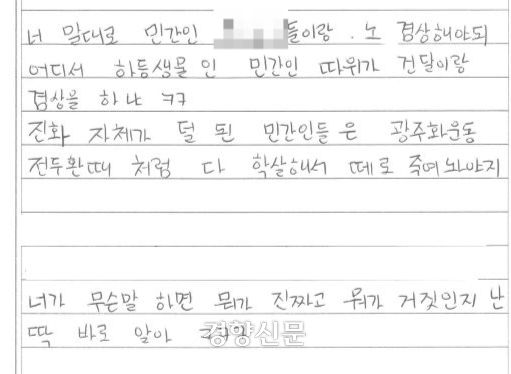 너 말대로 민간인 들이랑. 노 겸상해야되
어디서 하등생물인 민간인 따위가 건달이랑
겸상을 하냐 ㅋㅋ
진화 자체가 덜 된 민간인들은 광주화운동
전두환때 처럼 다 학살해서 떼로 죽여놔야지
너가 무슨말 하면 뭐가 진짜고 뭐가 거짓인지 난
딱 바로 알아 ㅋㅋㅋ
경향신문